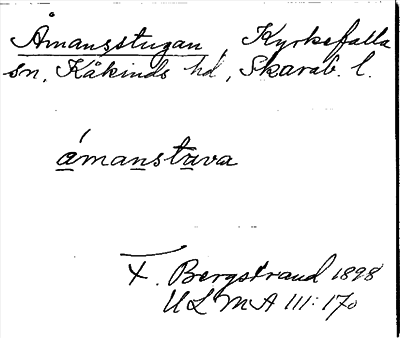 Åmansstugan, Kyrkefalla
sn, Kåkinds hd, Skarab. l.
ámanstuva
F. Bergstrand 1898
ULMA 111:170